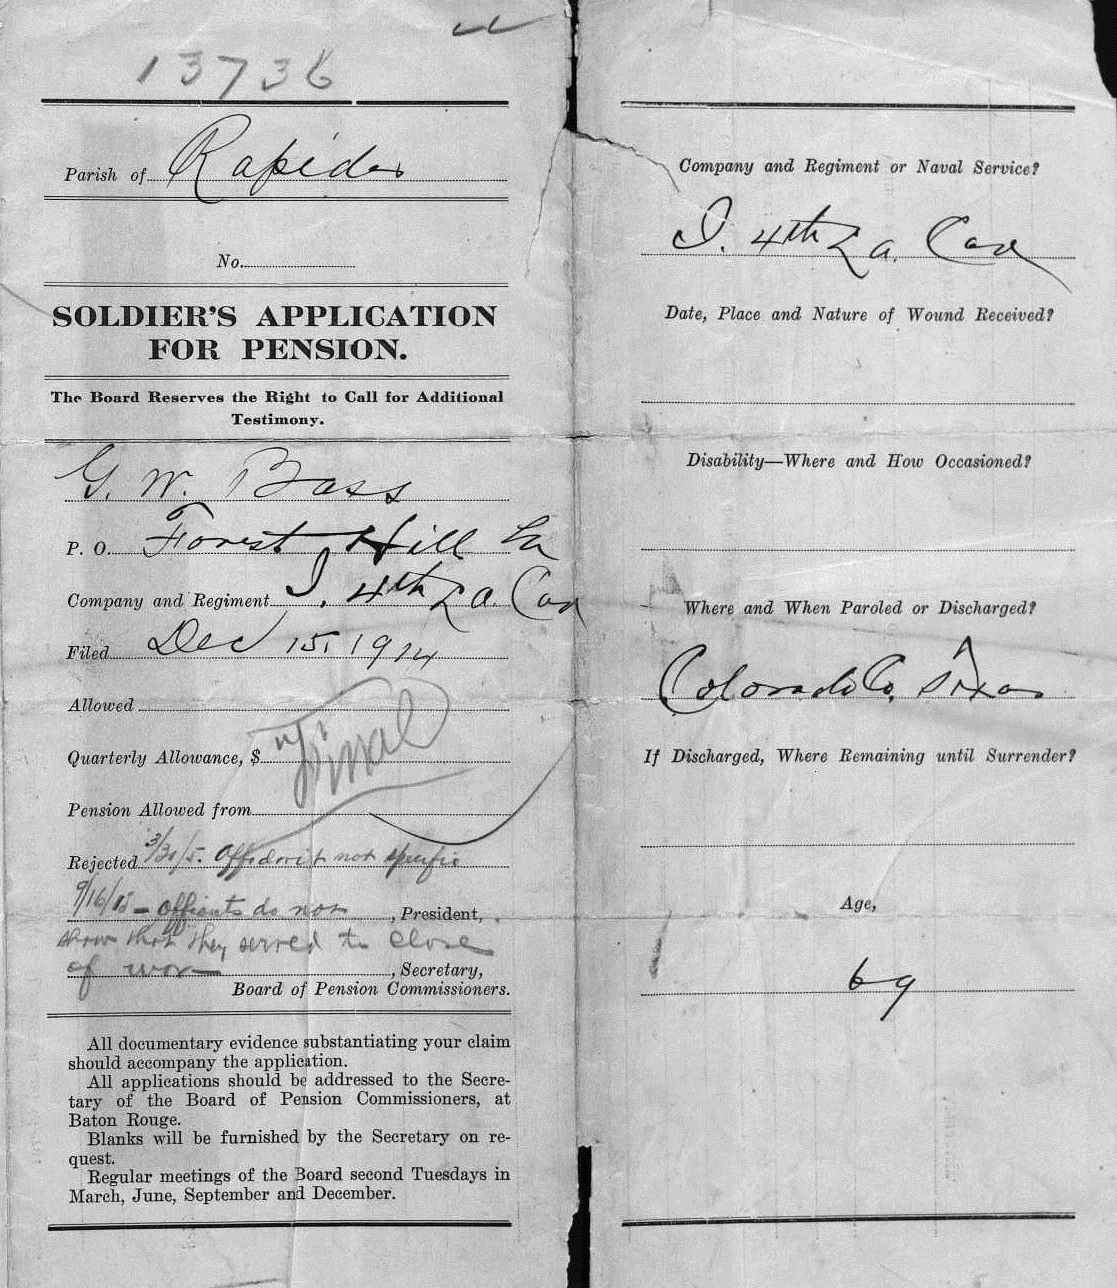 13736
Parish of Rapides
No.
SOLDIER'S APPLICATION
FOR PENSION.
The Board Reserves the Right to Call for Additional
Testimony.
G. W. Bass
P. O. Forest Hill La
Company and Regiment I. 4th La. Cav
Filed Dec 15, 1914
Allowed
Quarterly Allowance, $
"Final"
Pension Allowed from
Rejected 3/30/5. Affidavit not specific
9/16/15 - affiants do not , President,
show that they served to close
of war , Secretary,
Board of Pension Commissioners.
All documentary evidence substantiating your claim
should accompany the application.
All applications should be addressed to the Secre-
tary of the Board of Pension Commissioners, at
Baton Rouge.
Blanks will be furnished by the Secretary on re-
quest.
Regular meetings of the Board second Tuesdays in
March, June, September and December.
Company and Regiment or Naval Service?
I. 4th La. Cav
Date, Place and Nature of Wound Received?
Disability—Where and How Occasioned?
Where and When Paroled or Discharged?
Colorado Co, Texas
If Discharged, Where Remaining until Surrender?
Age,
69